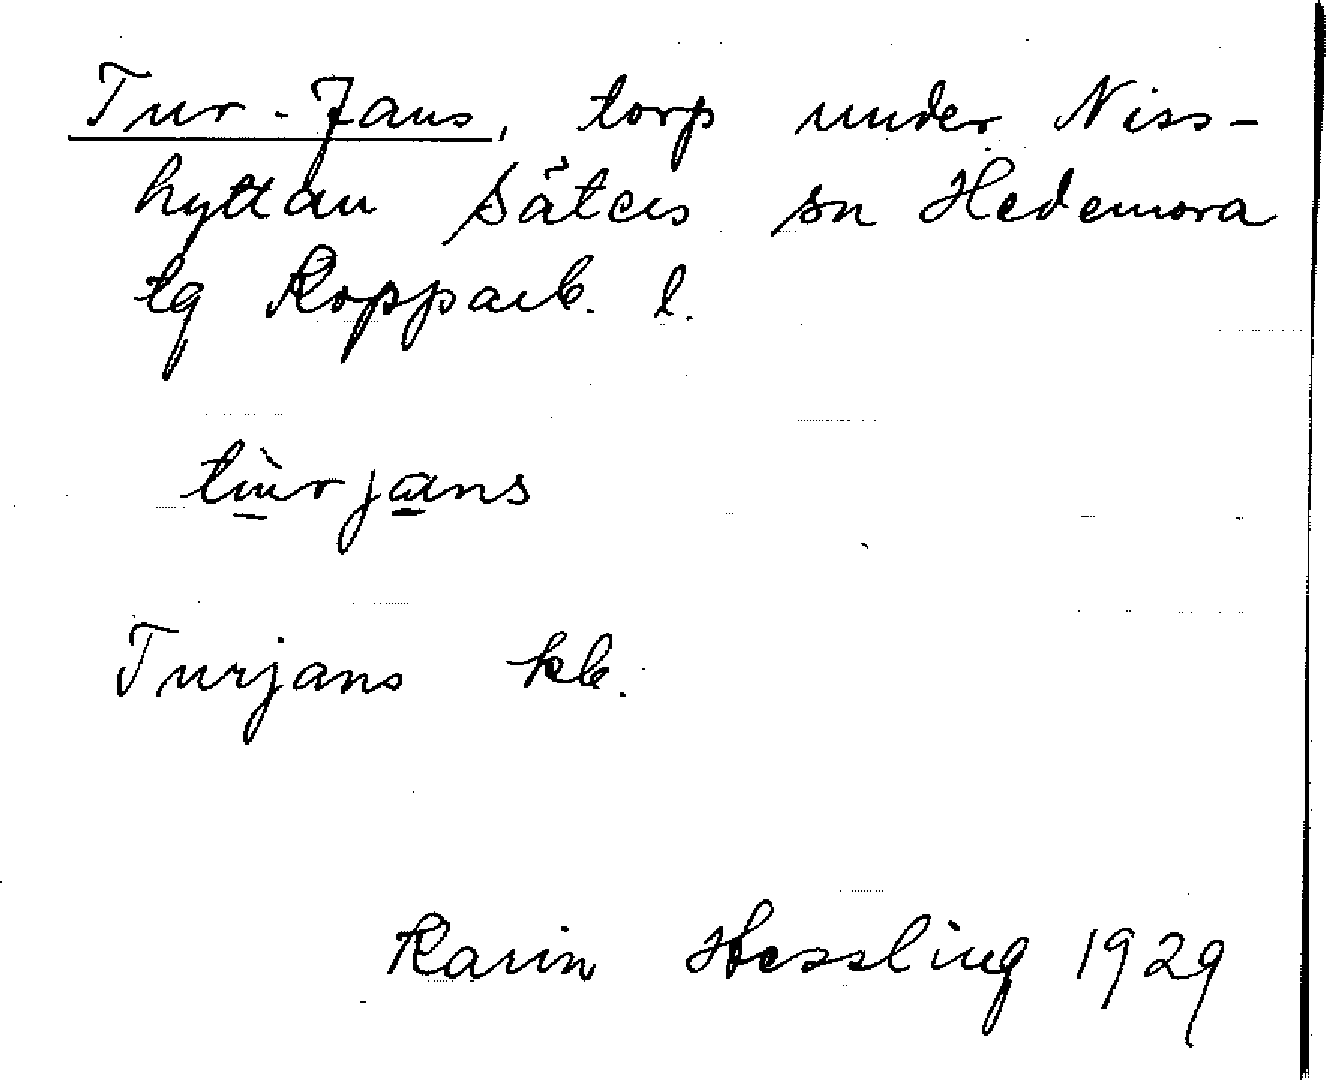 Tur-Jans, torp under Niss-
hyttan Säters sn Hedemora
tg Kopparb. l.
tùrjans
Turjans kb.
Karin Hessling 1929